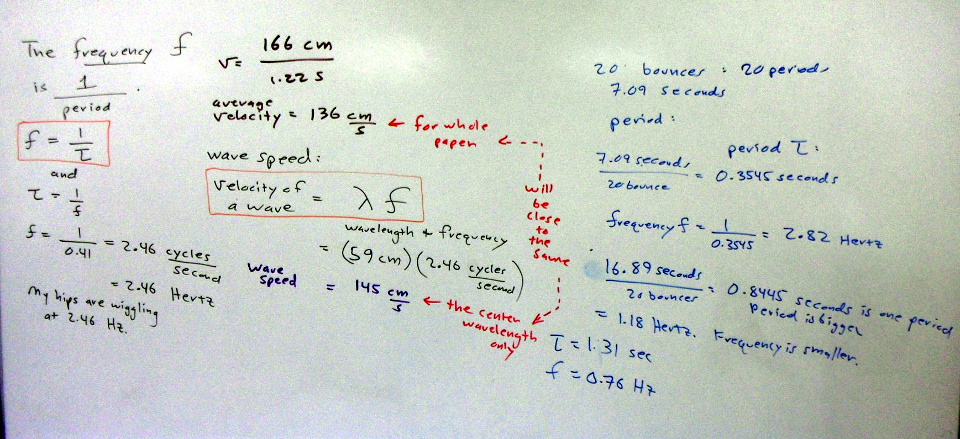 The frequency f
is 1
period .
f = 1
τ
and
τ = 1
f
f = 1 = 2.46 cycles
0.41 second
= 2.46 Hertz
My hips are wiggling
at 2.46 Hz.
v = 166 cm
1.22 s
average
velocity = 136 cm ← for whole
s paper
wave speed:
Velocity of = λ f
a wave
wavelength & frequency
= (59 cm) (2.46 cycles)
second
wave
speed = 145 cm ← the center
s wavelength
only
will
be
close
to
the
same
20 bounces : 20 periods
7.09 seconds
period :
period τ :
7.09 seconds = 0.3545 seconds
20 bounce
frequency f = 1 = 2.82 Hertz
0.3545
16.89 seconds = 0.8445 seconds is one period
20 bounces Period is bigger
= 1.18 Hertz. Frequency is smaller.
τ = 1.31 sec
f = 0.76 Hz